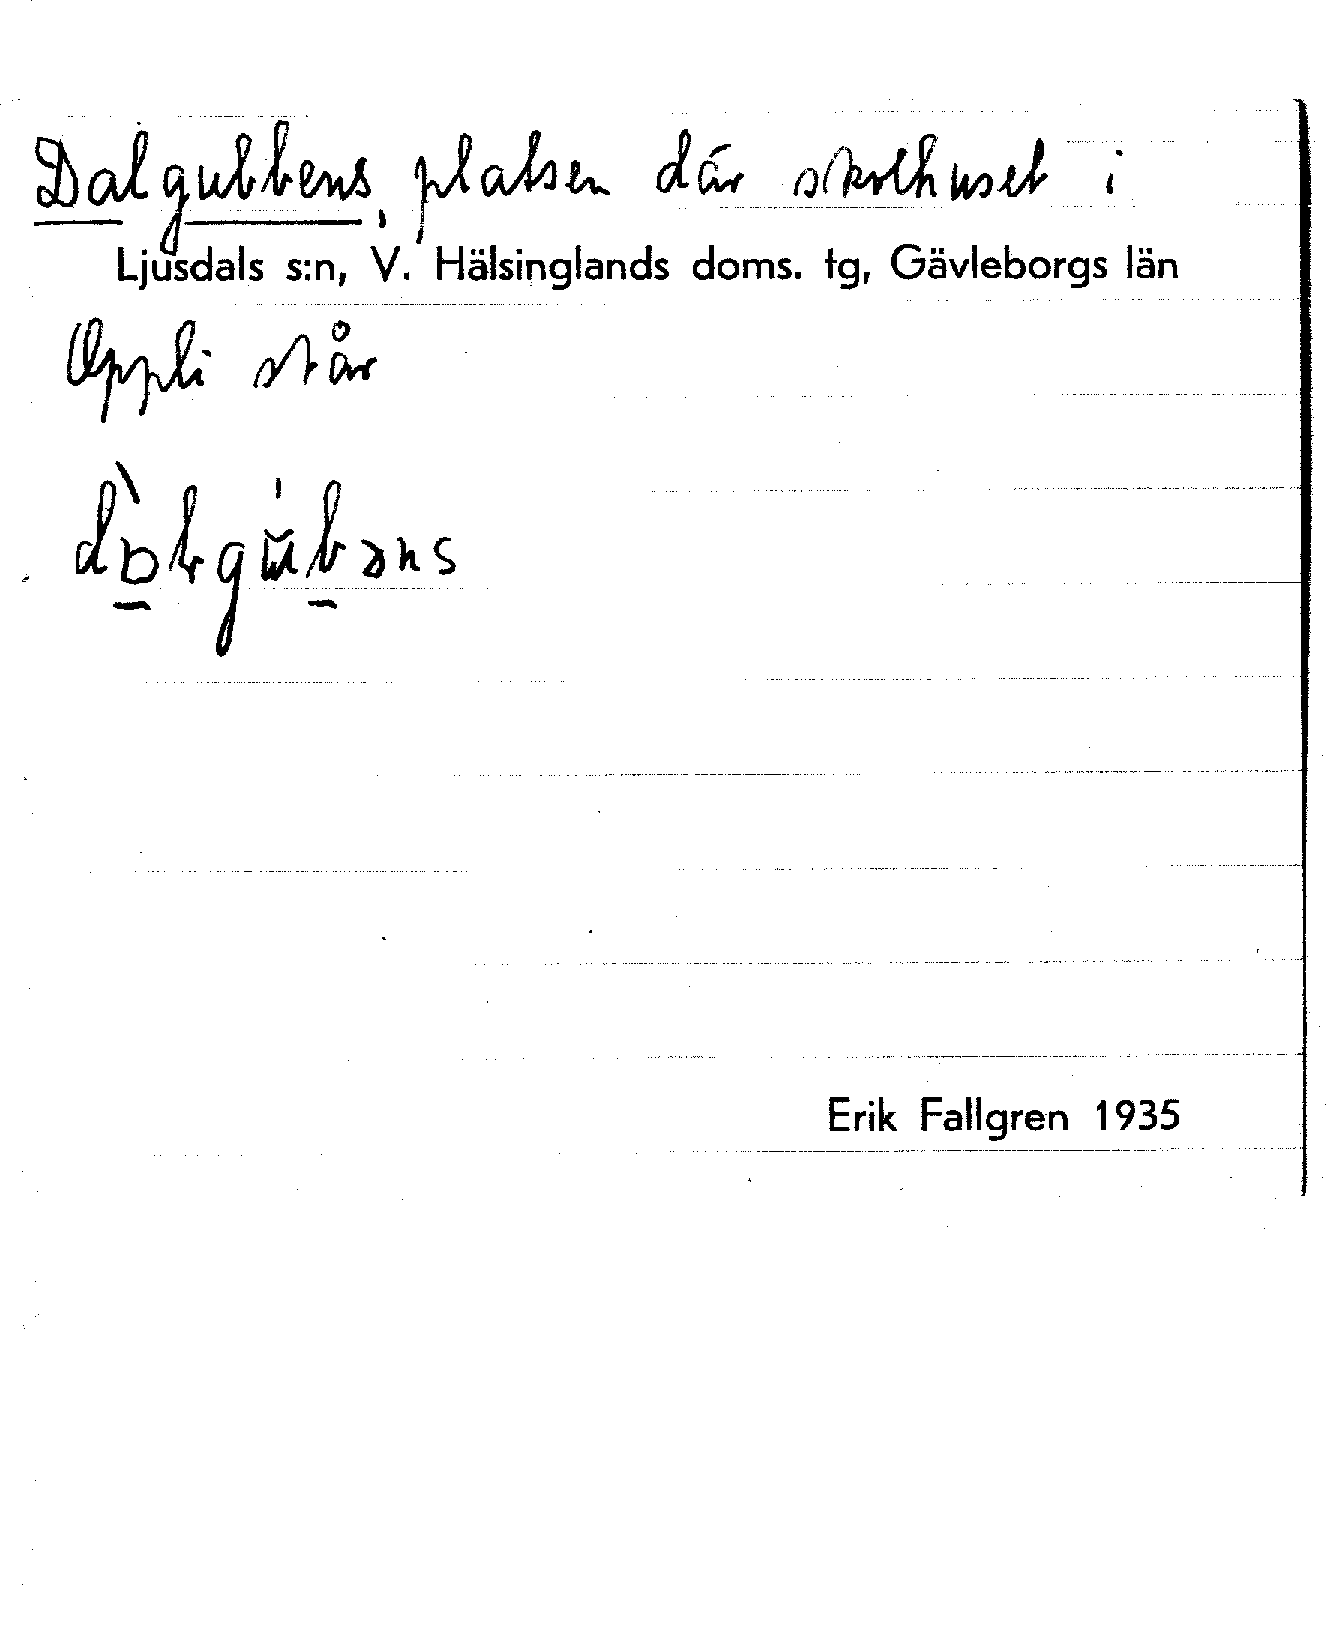 Dalgubbens, platsen där skolhuset i
Ljusdals s:n, V. Hälsinglands doms. tg, Gävleborgs län
Oppli står
Erik Fallgren 1935